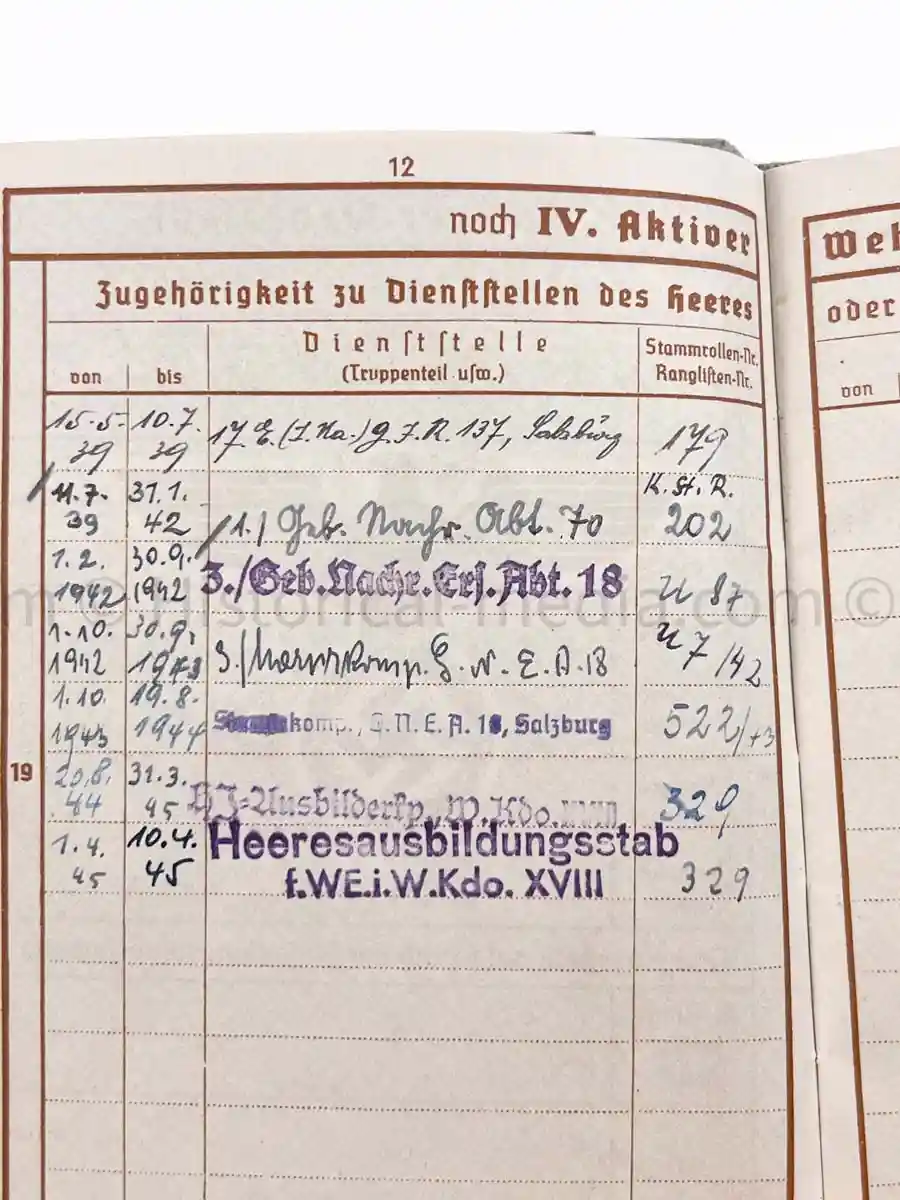 12
noch IV. Aktiver
Zugehörigkeit zu Dienststellen des Heeres
von
bis
Dienststelle
(Truppenteil usw.)
Stammrollen-Nr.
Ranglisten-Nr.
15.5. 39
10.7. 39
17. E. (I. Na.) G.J.R. 137, Salzburg
179
11.7. 39
31.1. 42
1./ Geb. Nachr. Abt. 70
K. St. R. 202
1.2. 1942
30.9. 1942
3./Geb.Nachr.Ers.Abt. 18
U 87
1.10. 1942
30.9. 1943
G. N. E. A. 18
U 7/42
1.10. 1943
19.8. 1944
komp., G.N.E.A. 18, Salzburg
522/43
19
20.8. 44
31.3. 45
HJ=Ausbilderkp., W.Kdo. XVIII
329
1.4. 45
10.4. 45
Heeresausbildungsstab
f.WE.i.W.Kdo. XVIII
329
oder
von
© Historical-media.com ©